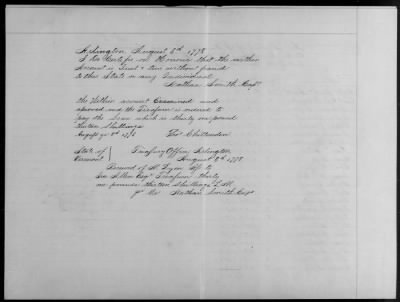 Arlington August 5th 1778
I Do Certifie on Honour that the within
Account is Just & true without fraud
to this State or any Individual
Nathan Smith Capt
the Within account Examined and
aproved and the Treasurer is ordered to
pay the Same which is thirty one pound
thirteen Shillings
August ye 5th 1778 Thos Chittenden
State of Vermont } Treasury Office Arlington
August 5th 1778
Received of M Lyon to
Ira Allen Esqr Treasurer thirty
one pounds thirteen Shillings L M
Nathan Smith Capt